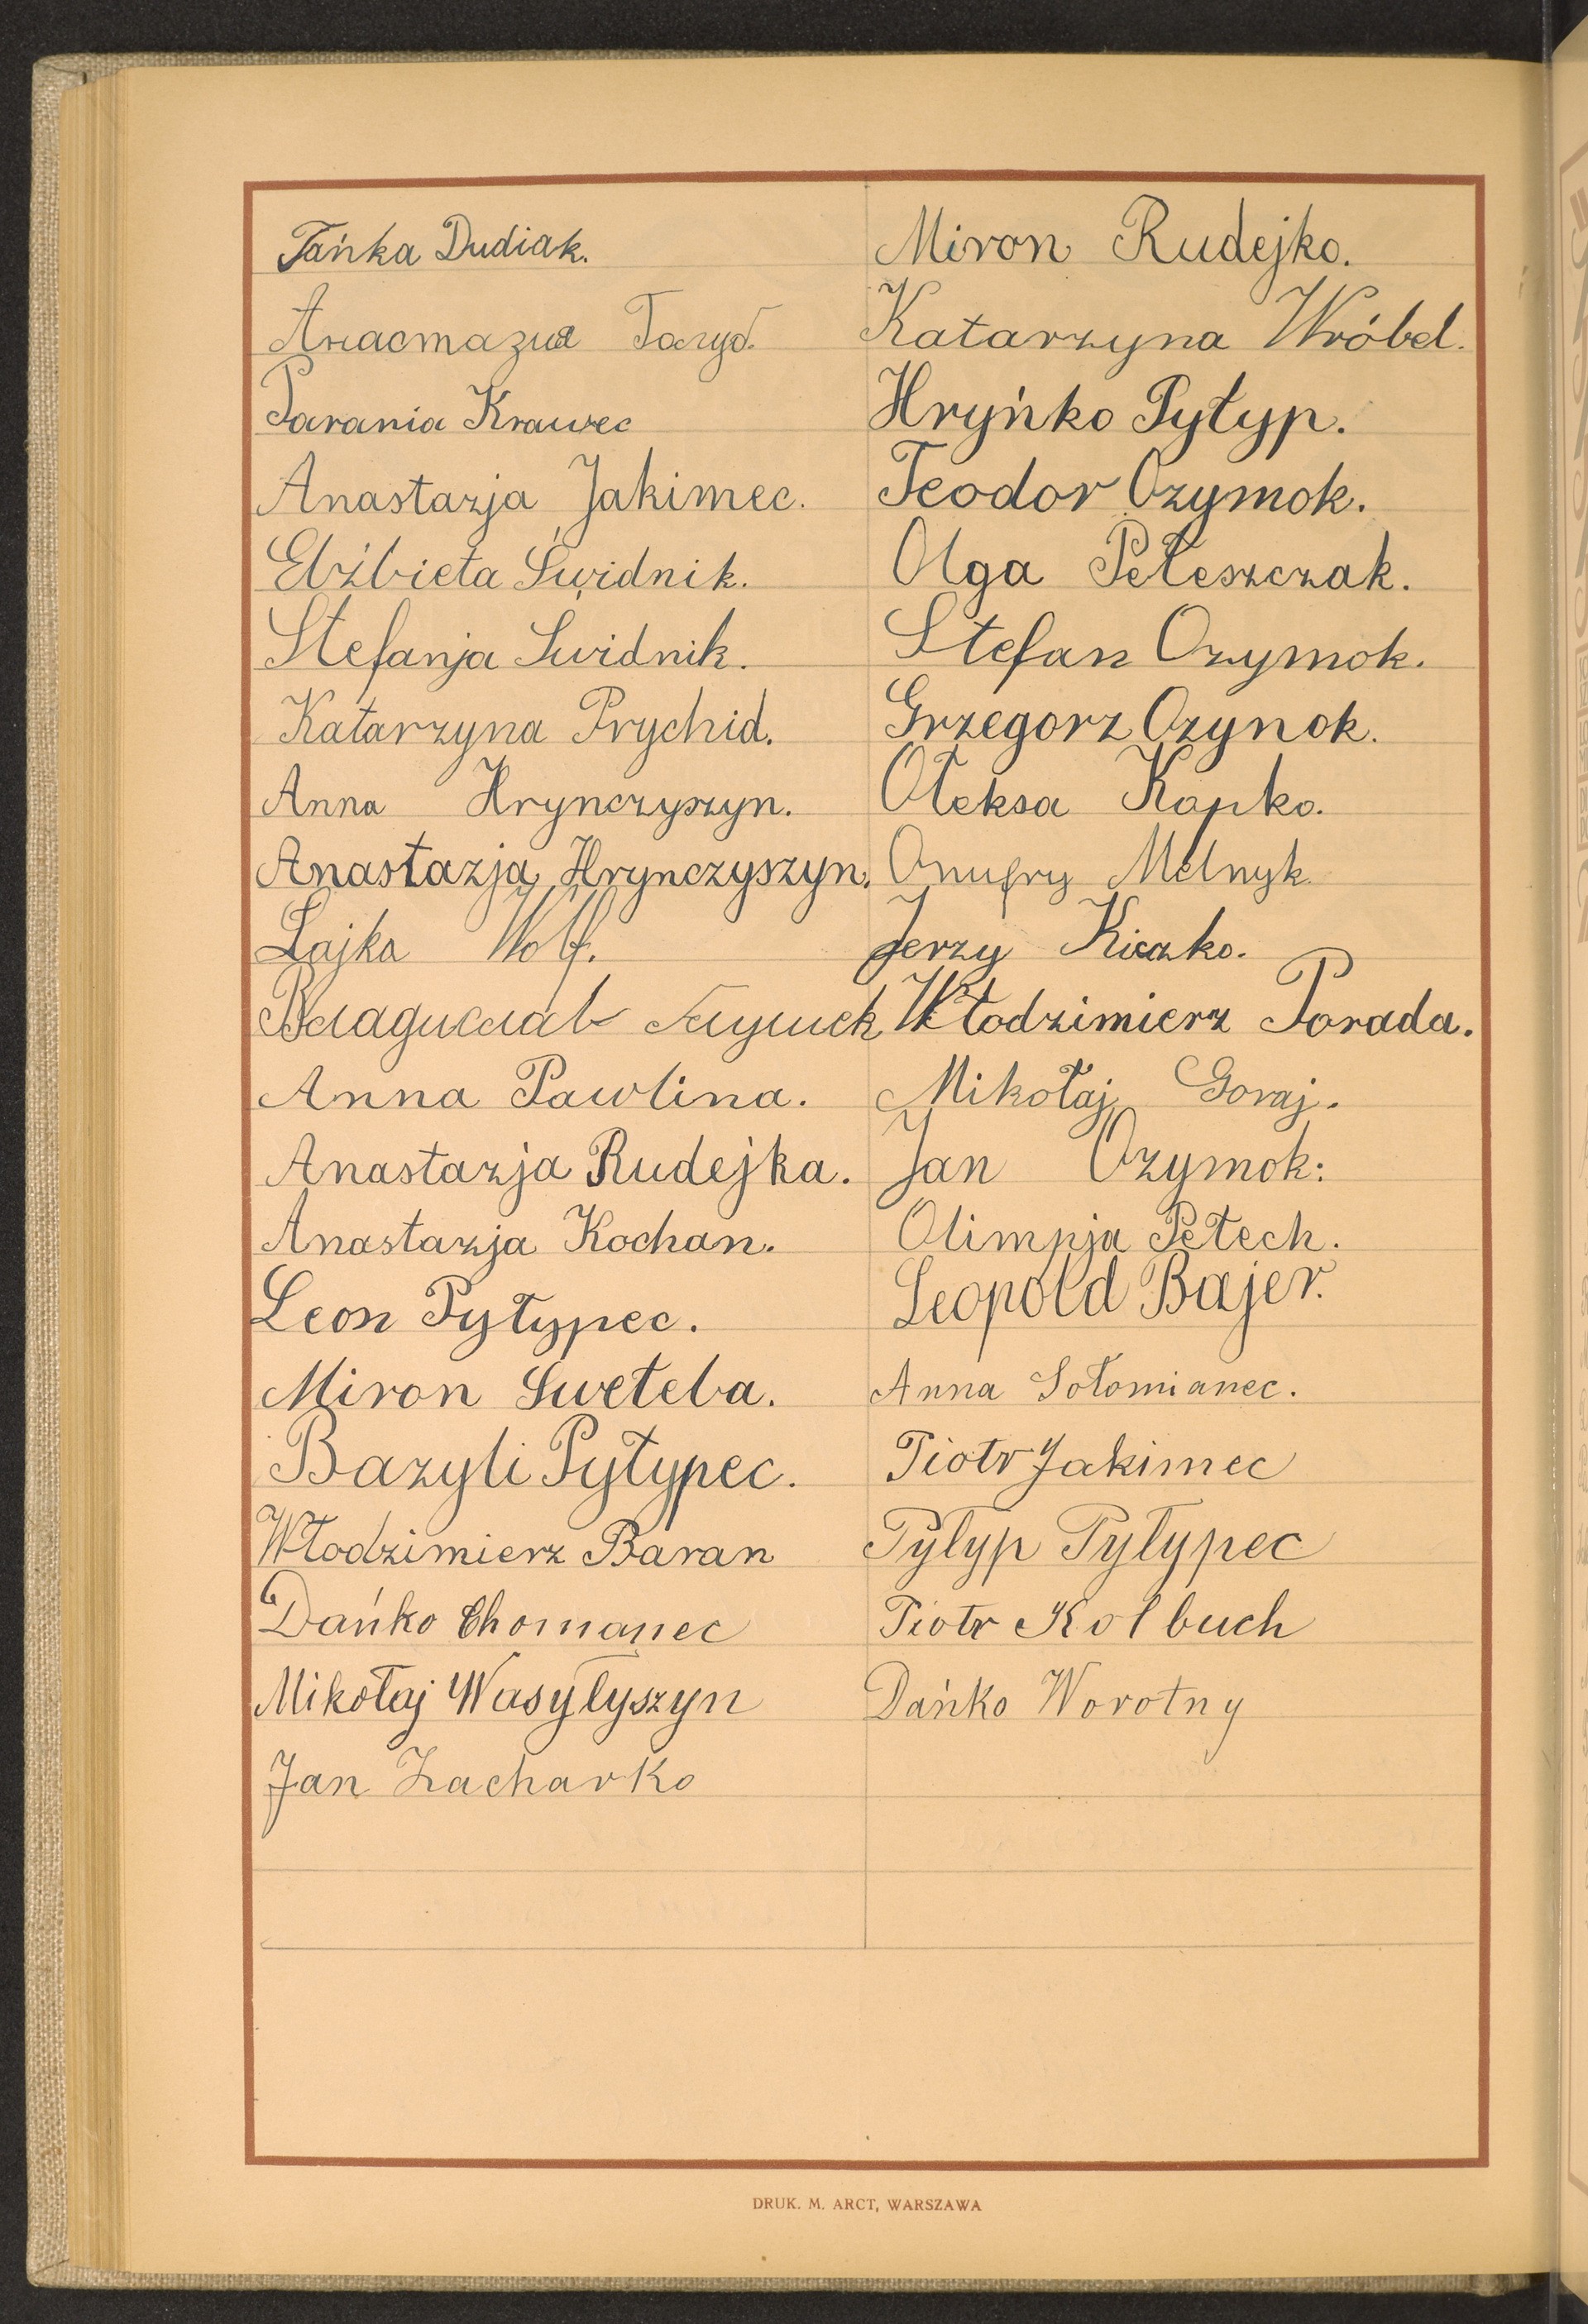 Tańka Dudiak.
Анастазия Гагуб.
Parania Krawec
Anastazja Jakimec.
Elżbieta Świdnik.
Stefanja Swidnik.
Katarzyna Prychid.
Anna Hrynczyszyn.
Anastazja Hrynczyszyn.
Lajka Wolf.
Anna Pawlina.
Anastazja Rudejka.
Anastazja Kochan.
Leon Pyłypec.
Miron Sweteba.
Bazyli Pyłypec.
Włodzimierz Baran
Dańko Chomanec
Mikołaj Wasyłyszyn
Jan Zacharko
Miron Rudejko.
Katarzyna Wróbel.
Hryńko Pyłyp.
Teodor Ozymok.
Olga Pełeszczak.
Stefan Ozymok.
Grzegorz Ozynok.
Ołeksa Kopko.
Onufry Melnyk.
Jerzy Kiczko.
Włodzimierz Porada.
Mikołaj Goraj.
Jan Ozymok:
Olimpja Pełech.
Leopold Bajer.
Anna Sołomianec.
Piotr Jakimec
Pyłyp Pyłypec
Piotr Kolbuch
Dańko Worotny
DRUK. M. ARCT, WARSZAWA